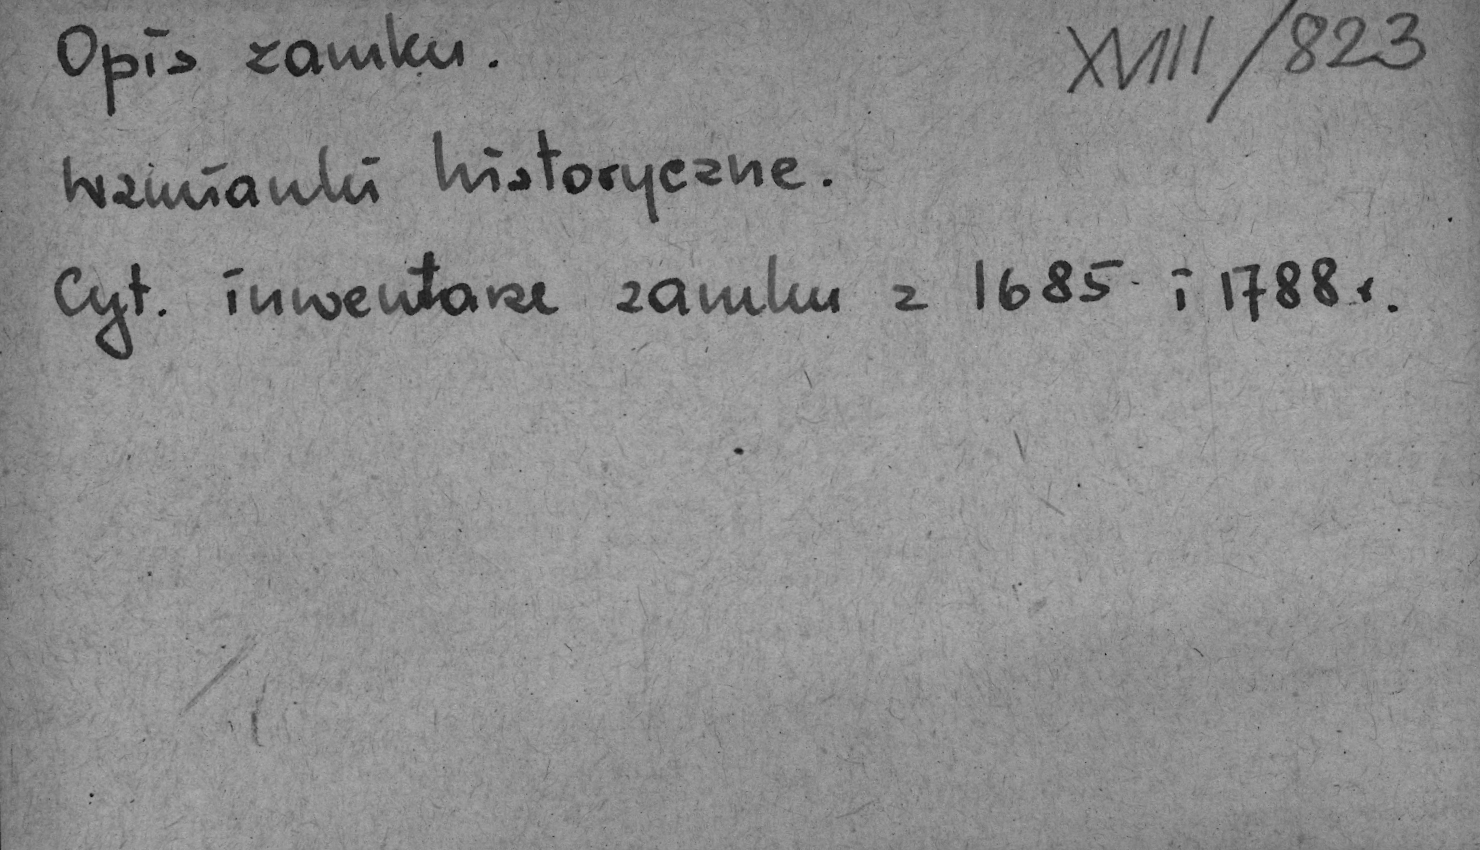 Opis zamku. XVIII/823
Wzmianki historyczne.
Cyt. inwentarze zamku z 1685 i 1788 r.